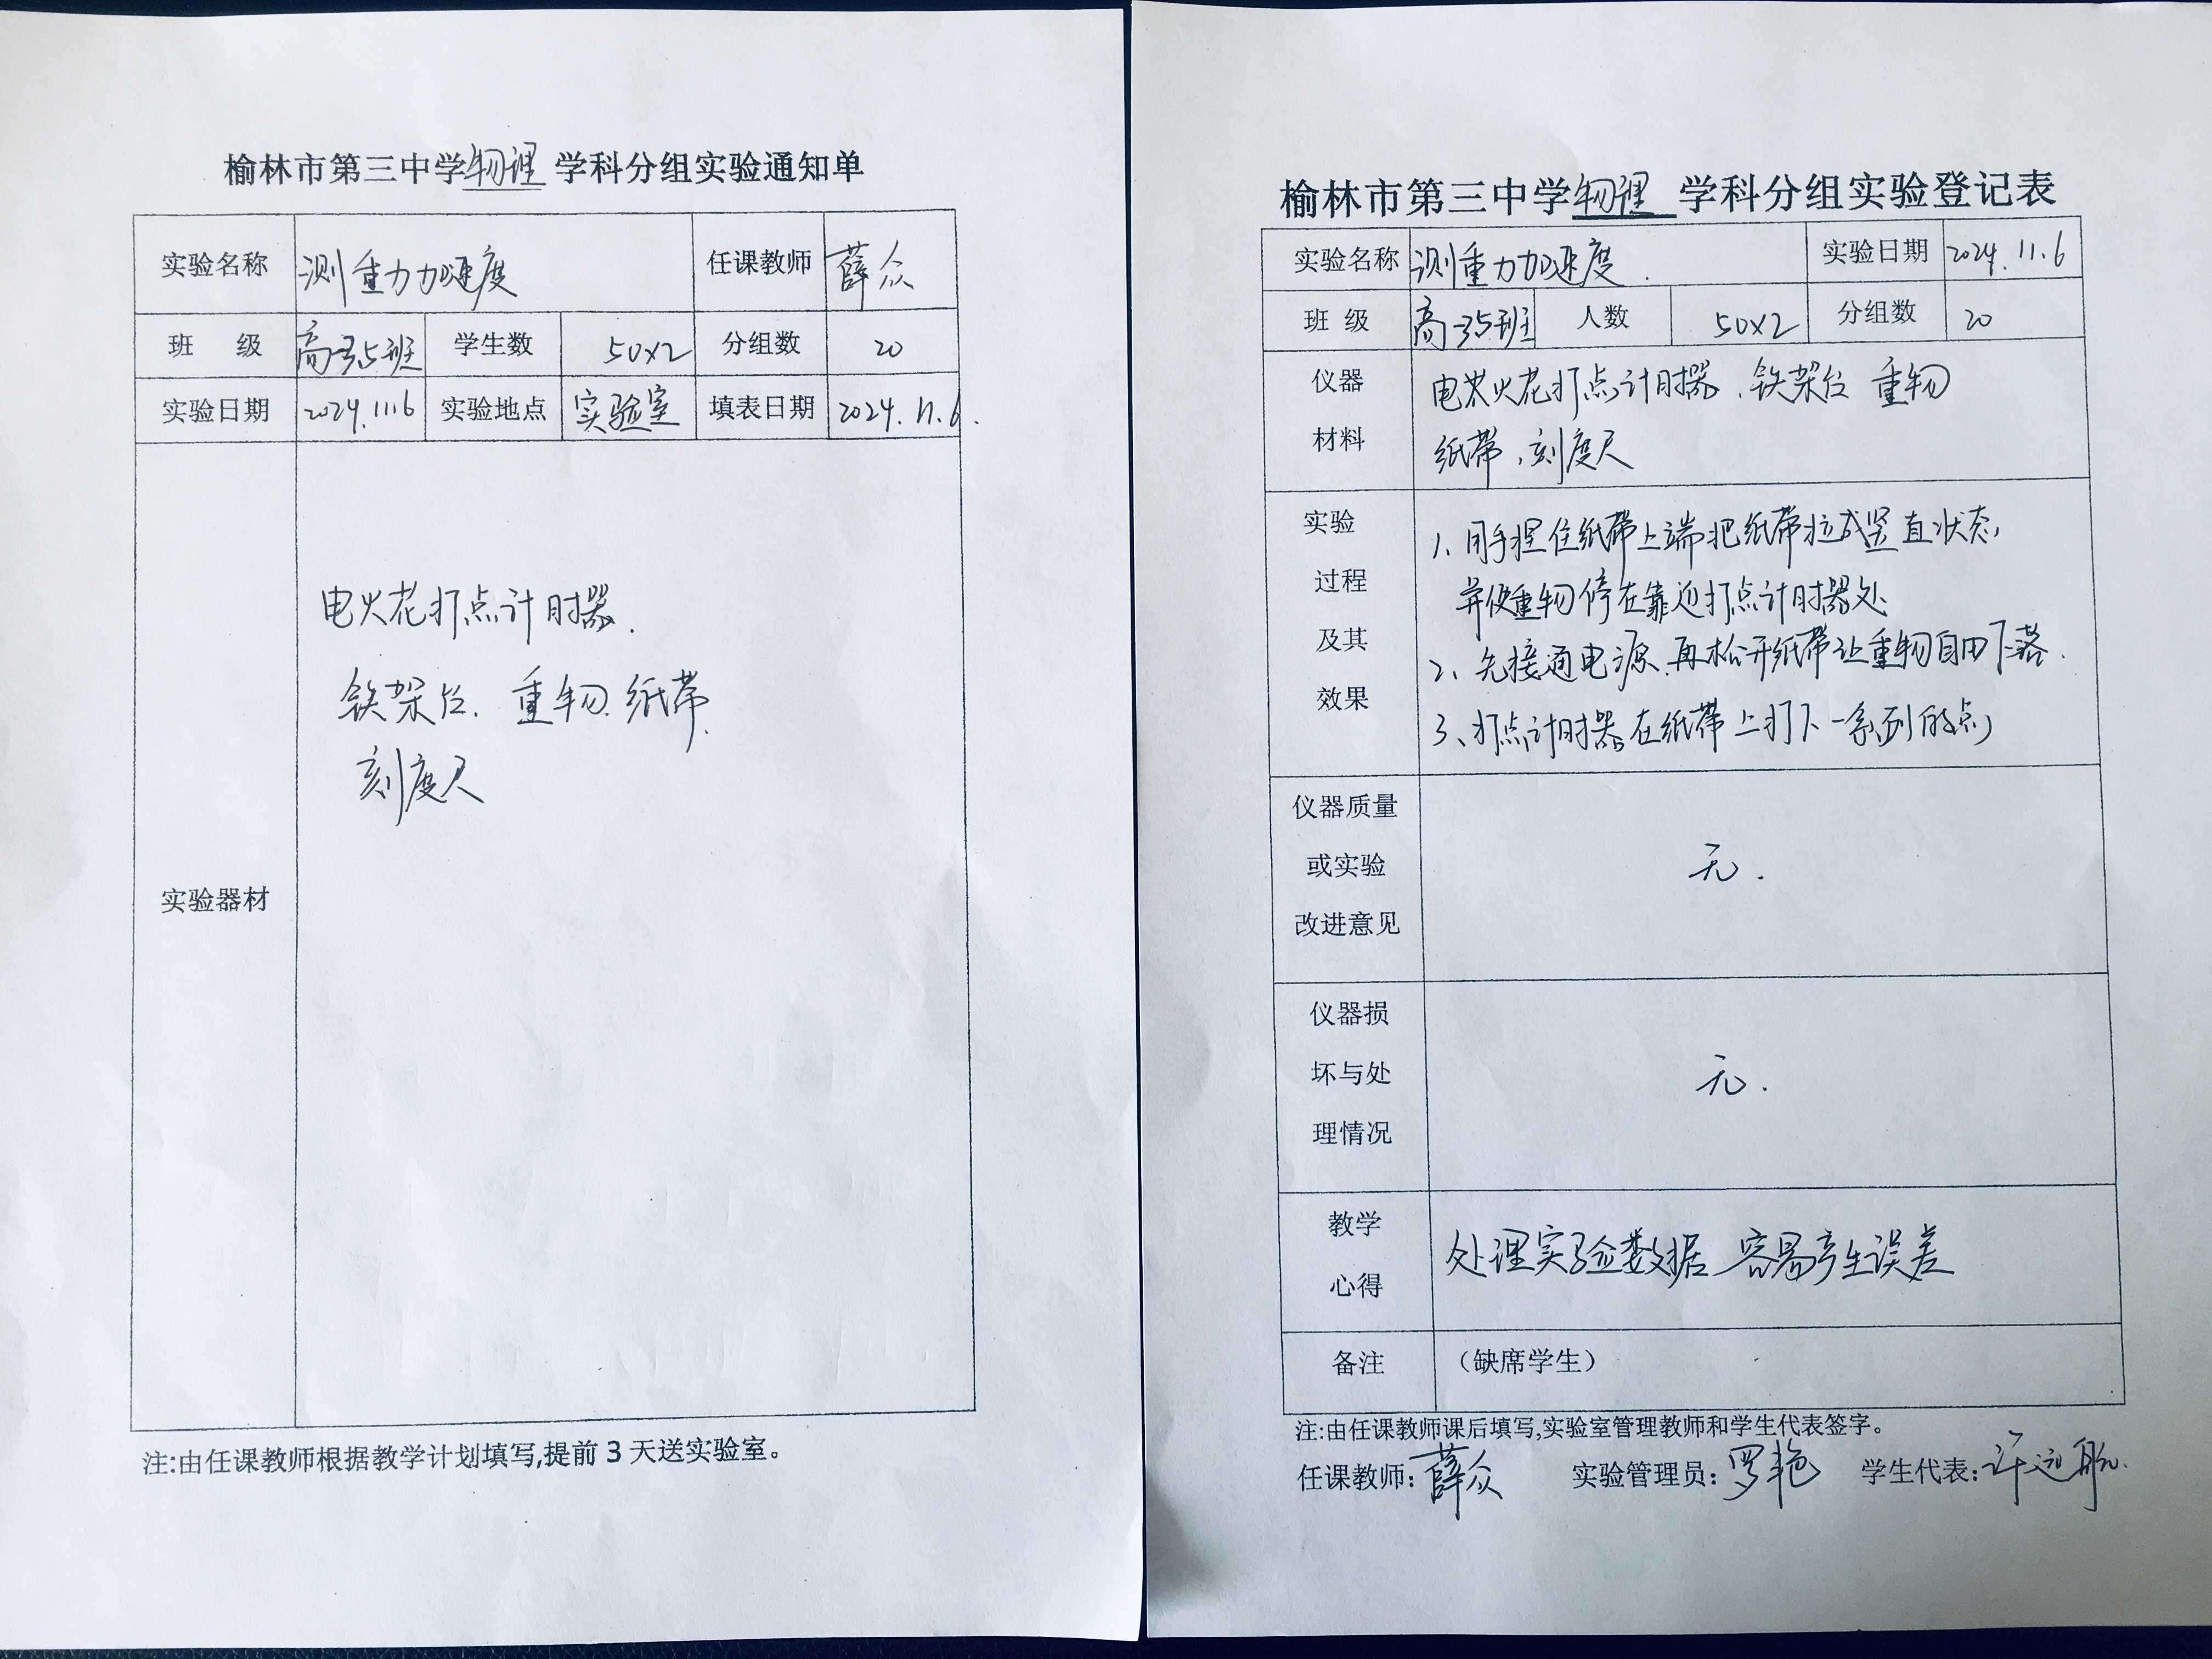 榆林市第三中学物理 学科分组实验通知单
实验名称 测重力加速度 任课教师 薛众
班 级 高一35班 学生数 50×2 分组数 20
实验日期 2024.11.6 实验地点 实验室 填表日期 2024.11.6.
实验器材
电火花打点计时器.
铁架台、重物、纸带、
刻度尺
注:由任课教师根据教学计划填写,提前 3 天送实验室。
榆林市第三中学物理 学科分组实验登记表
实验名称 测重力加速度. 实验日期 2024.11.6
班 级 高一35班 人数 50×2 分组数 20
仪器
材料
电火花打点计时器、铁架台 重物
纸带、刻度尺
实验
过程
及其
效果
1、用手捏住纸带上端把纸带拉成竖直状态,
并使重物停在靠近打点计时器处
2、先接通电源、再松开纸带让重物自由下落.
3、打点计时器在纸带上打下一系列的点,
仪器质量
或实验
改进意见
无.
仪器损
坏与处
理情况
无.
教学
心得
处理实验数据 容易产生误差
备注 （缺席学生）
注:由任课教师课后填写,实验室管理教师和学生代表签字。
任课教师:薛众 实验管理员:罗艳 学生代表:许远航.